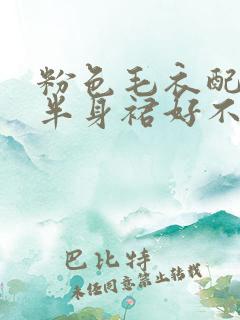 粉色毛衣配
半身裙好不
巴比特
未经同意禁止转载